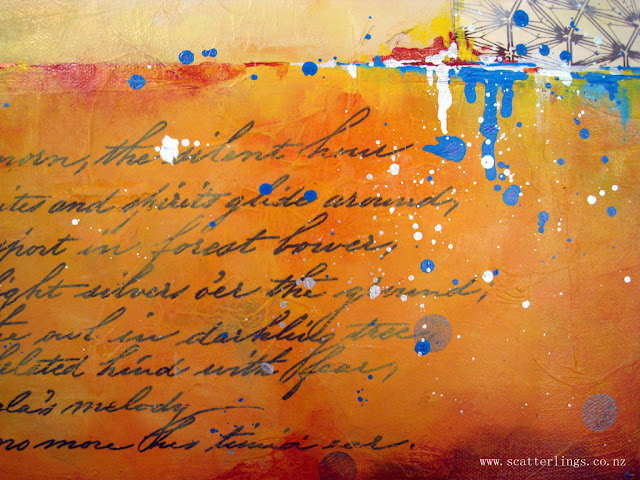 morn, the silent hour
ites and spirits glide around,
sport in forest bower,
light silvers o'er the ground,
the owl in darkling trees
elated hind with fear,
la's melody
no more his timid ear.
www.scatterlings.co.nz